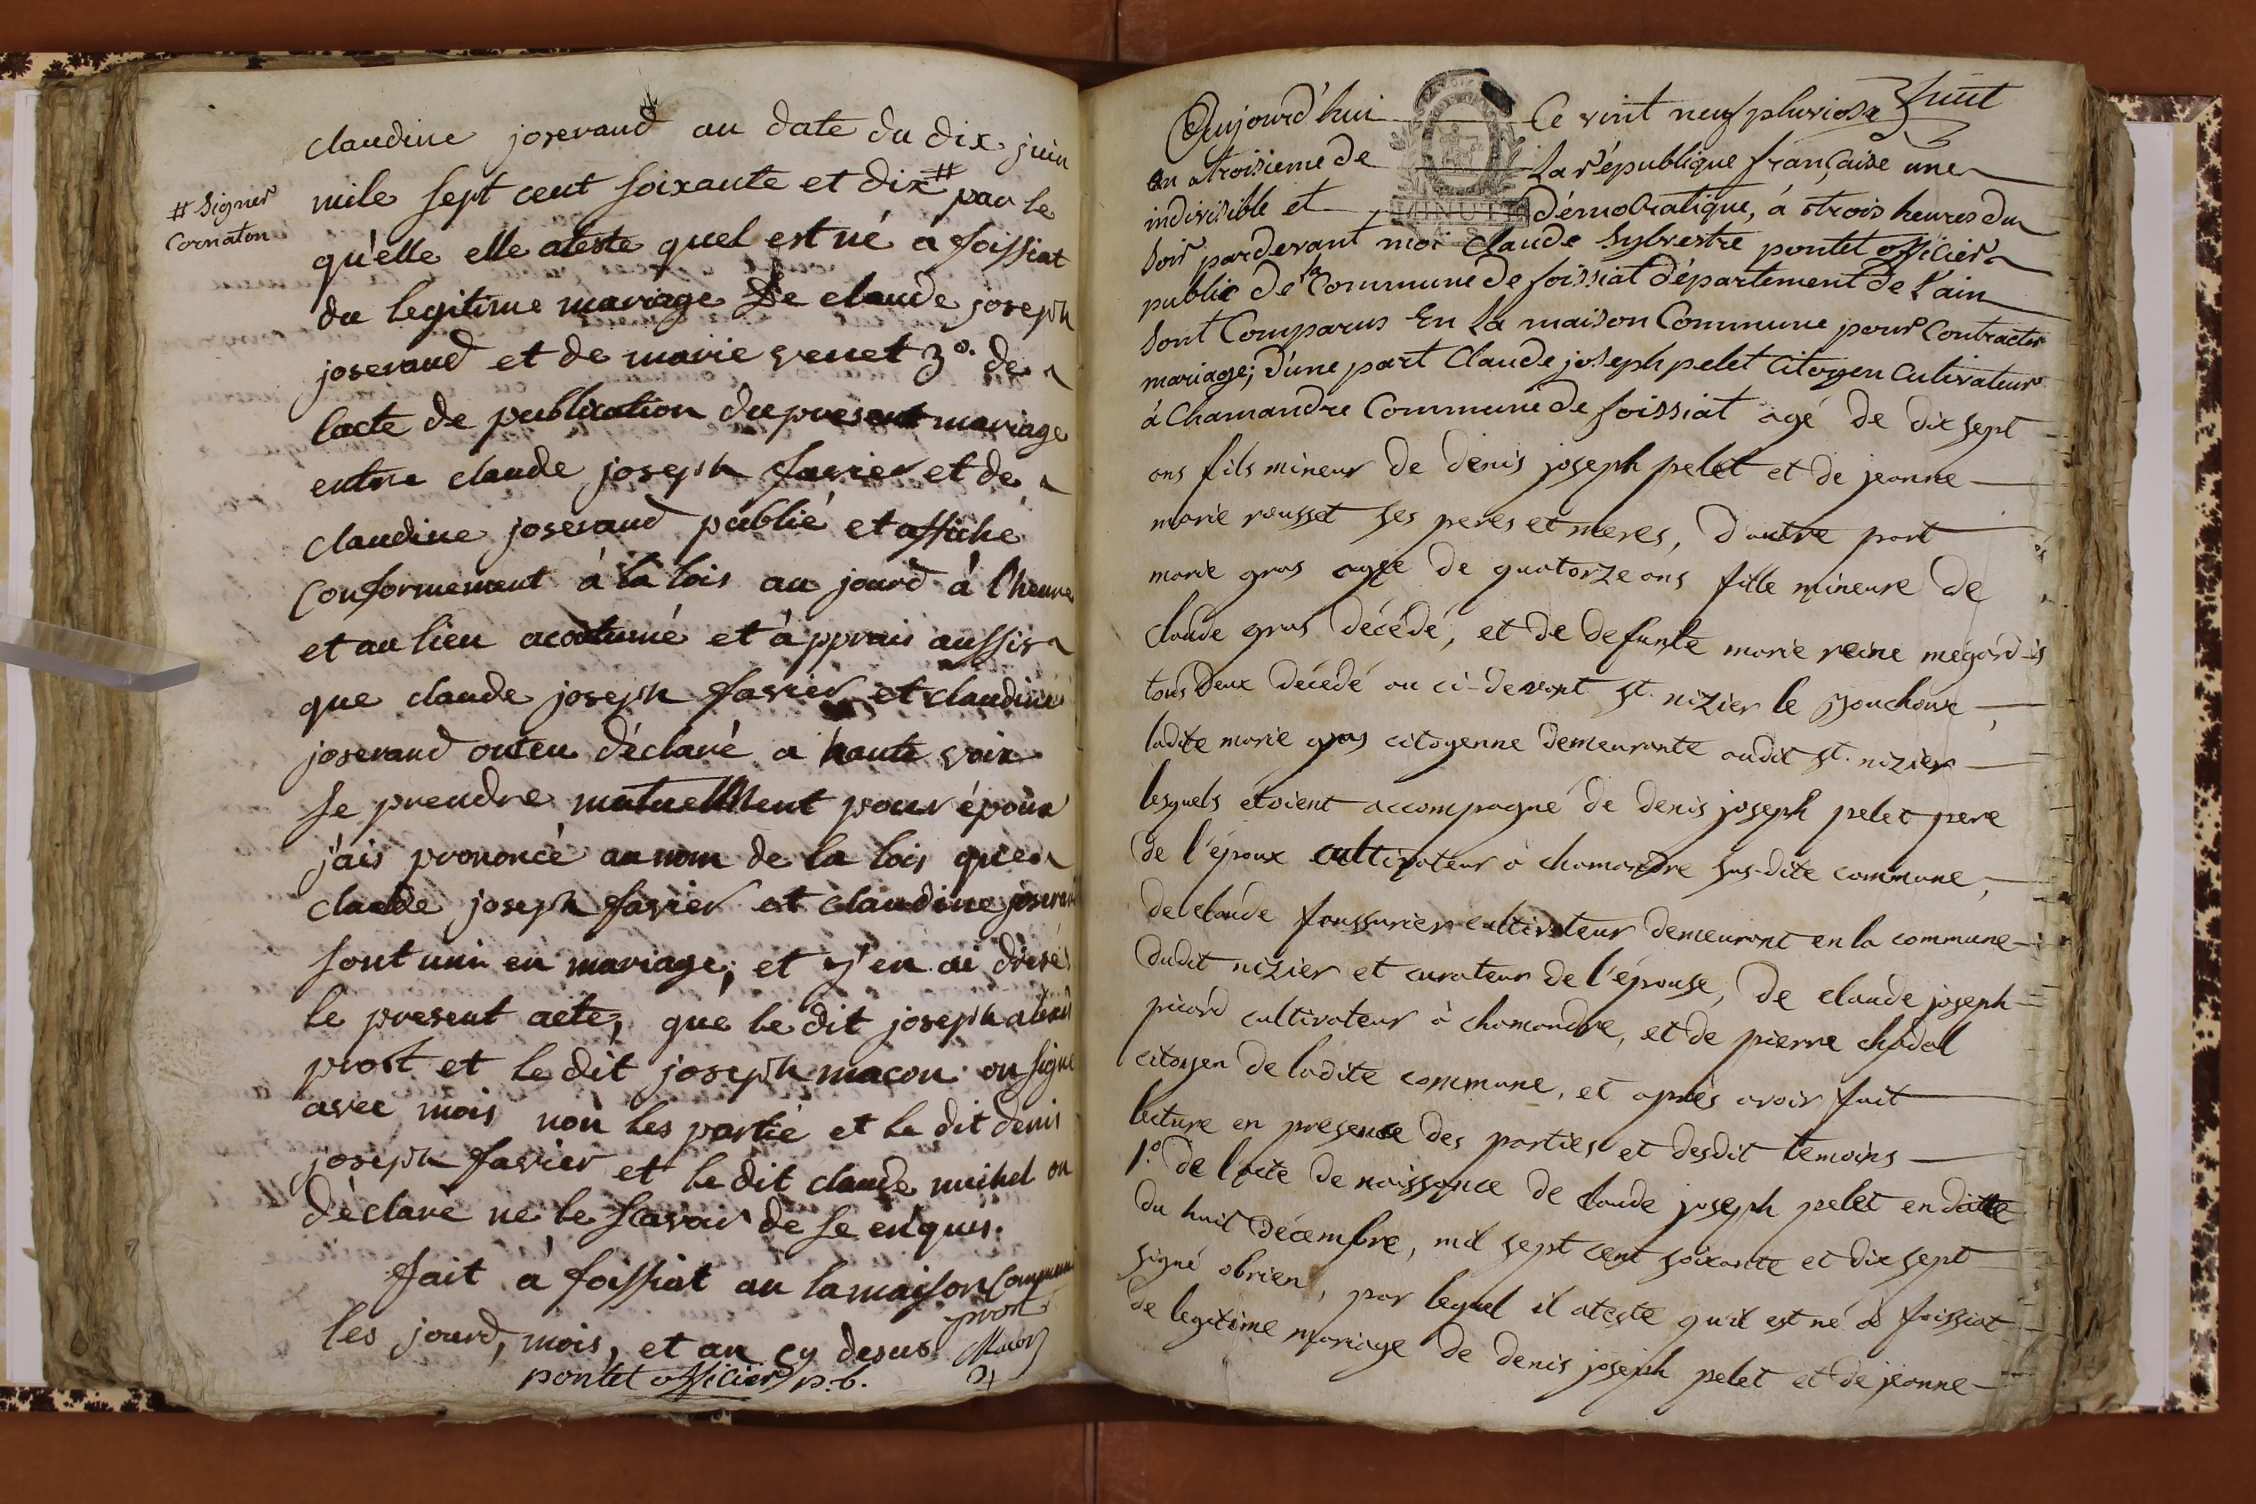 claudine joserand au date du dix juin
mile sept cent soixante et dix # par le
# signer
cornaton
qu'elle elle ateste quel est né a foissiat
du legitime mariage de claude joseph
joserand et de marie venet 3°. de
lacte de publication du present mariage
entre claude joseph favier et de
claudine joserand publié et affiche
conformement à la lois au jourd à l'heure
et au lieu acoutumé et à pprais aussir
que claude joseph favier et claudine
joserand onten déclaré a haute voix
se prendre mutuellment pour époux
j'ais prononcé au nom de la lois que
claude joseph favier et claudine joserand
sont unir en mariage; et j'en ai dresé
le present acte, que le dit joseph
prost et le dit joseph macon on signé
avec mois non les partie et le dit denis
joseph favier et le dit claude michel on
déclaré ne le scavoir de se enquis.
fait à foissiat au la maison commune
les jourd, mois, et an cy desus
prost
Macon
pontet officier p.b.
huit
Aujourd'hui Ce vint neuf pluviose
an troisieme de La république française une
indivisible et démocratique, à trois heures du
MINUTE
soir pardevant moi Claude Sylvestre pontet officier
public de la Commune de foissiat département de l'ain
sont Comparus En la maison Commune pour Contracter
mariage; d'une part Claude joseph pelet Citoyen Cultivateur
à Chamandre Commune de foissiat agé de dix sept
ans fils mineur de denis joseph pelet et de jeanne
marie rousset ses peres et meres, d'autre part
marie gras agée de quatorze ans fille mineure de
claude gras décédé, et de defunte marie reine megard
tous deux décédé au ci-devant st. nizier le Bouchoux,
ladite marie gras citoyenne demeurante audit st. nizier
lesquels étoient accompagné de denis joseph pelet pere
de l'époux cultivateur à chamandre sus-dite commune,
de claude foussurier cultivateur demeurant en la commune
dudit nizier et curateur de l'épouse, de claude joseph
picard cultivateur à chamandre, et de pierre chadal
citoyen de ladite commune, et après avoir fait
lecture en presence des parties et desdit temoins
1°. de l'acte de naissance de claude joseph pelet en datte
du huit décembre, mil sept cent soixante et dix sept
signé obrien, par lequel il ateste qu'il est né à foissiat
de legitime mariage de denis joseph pelet et de jeanne